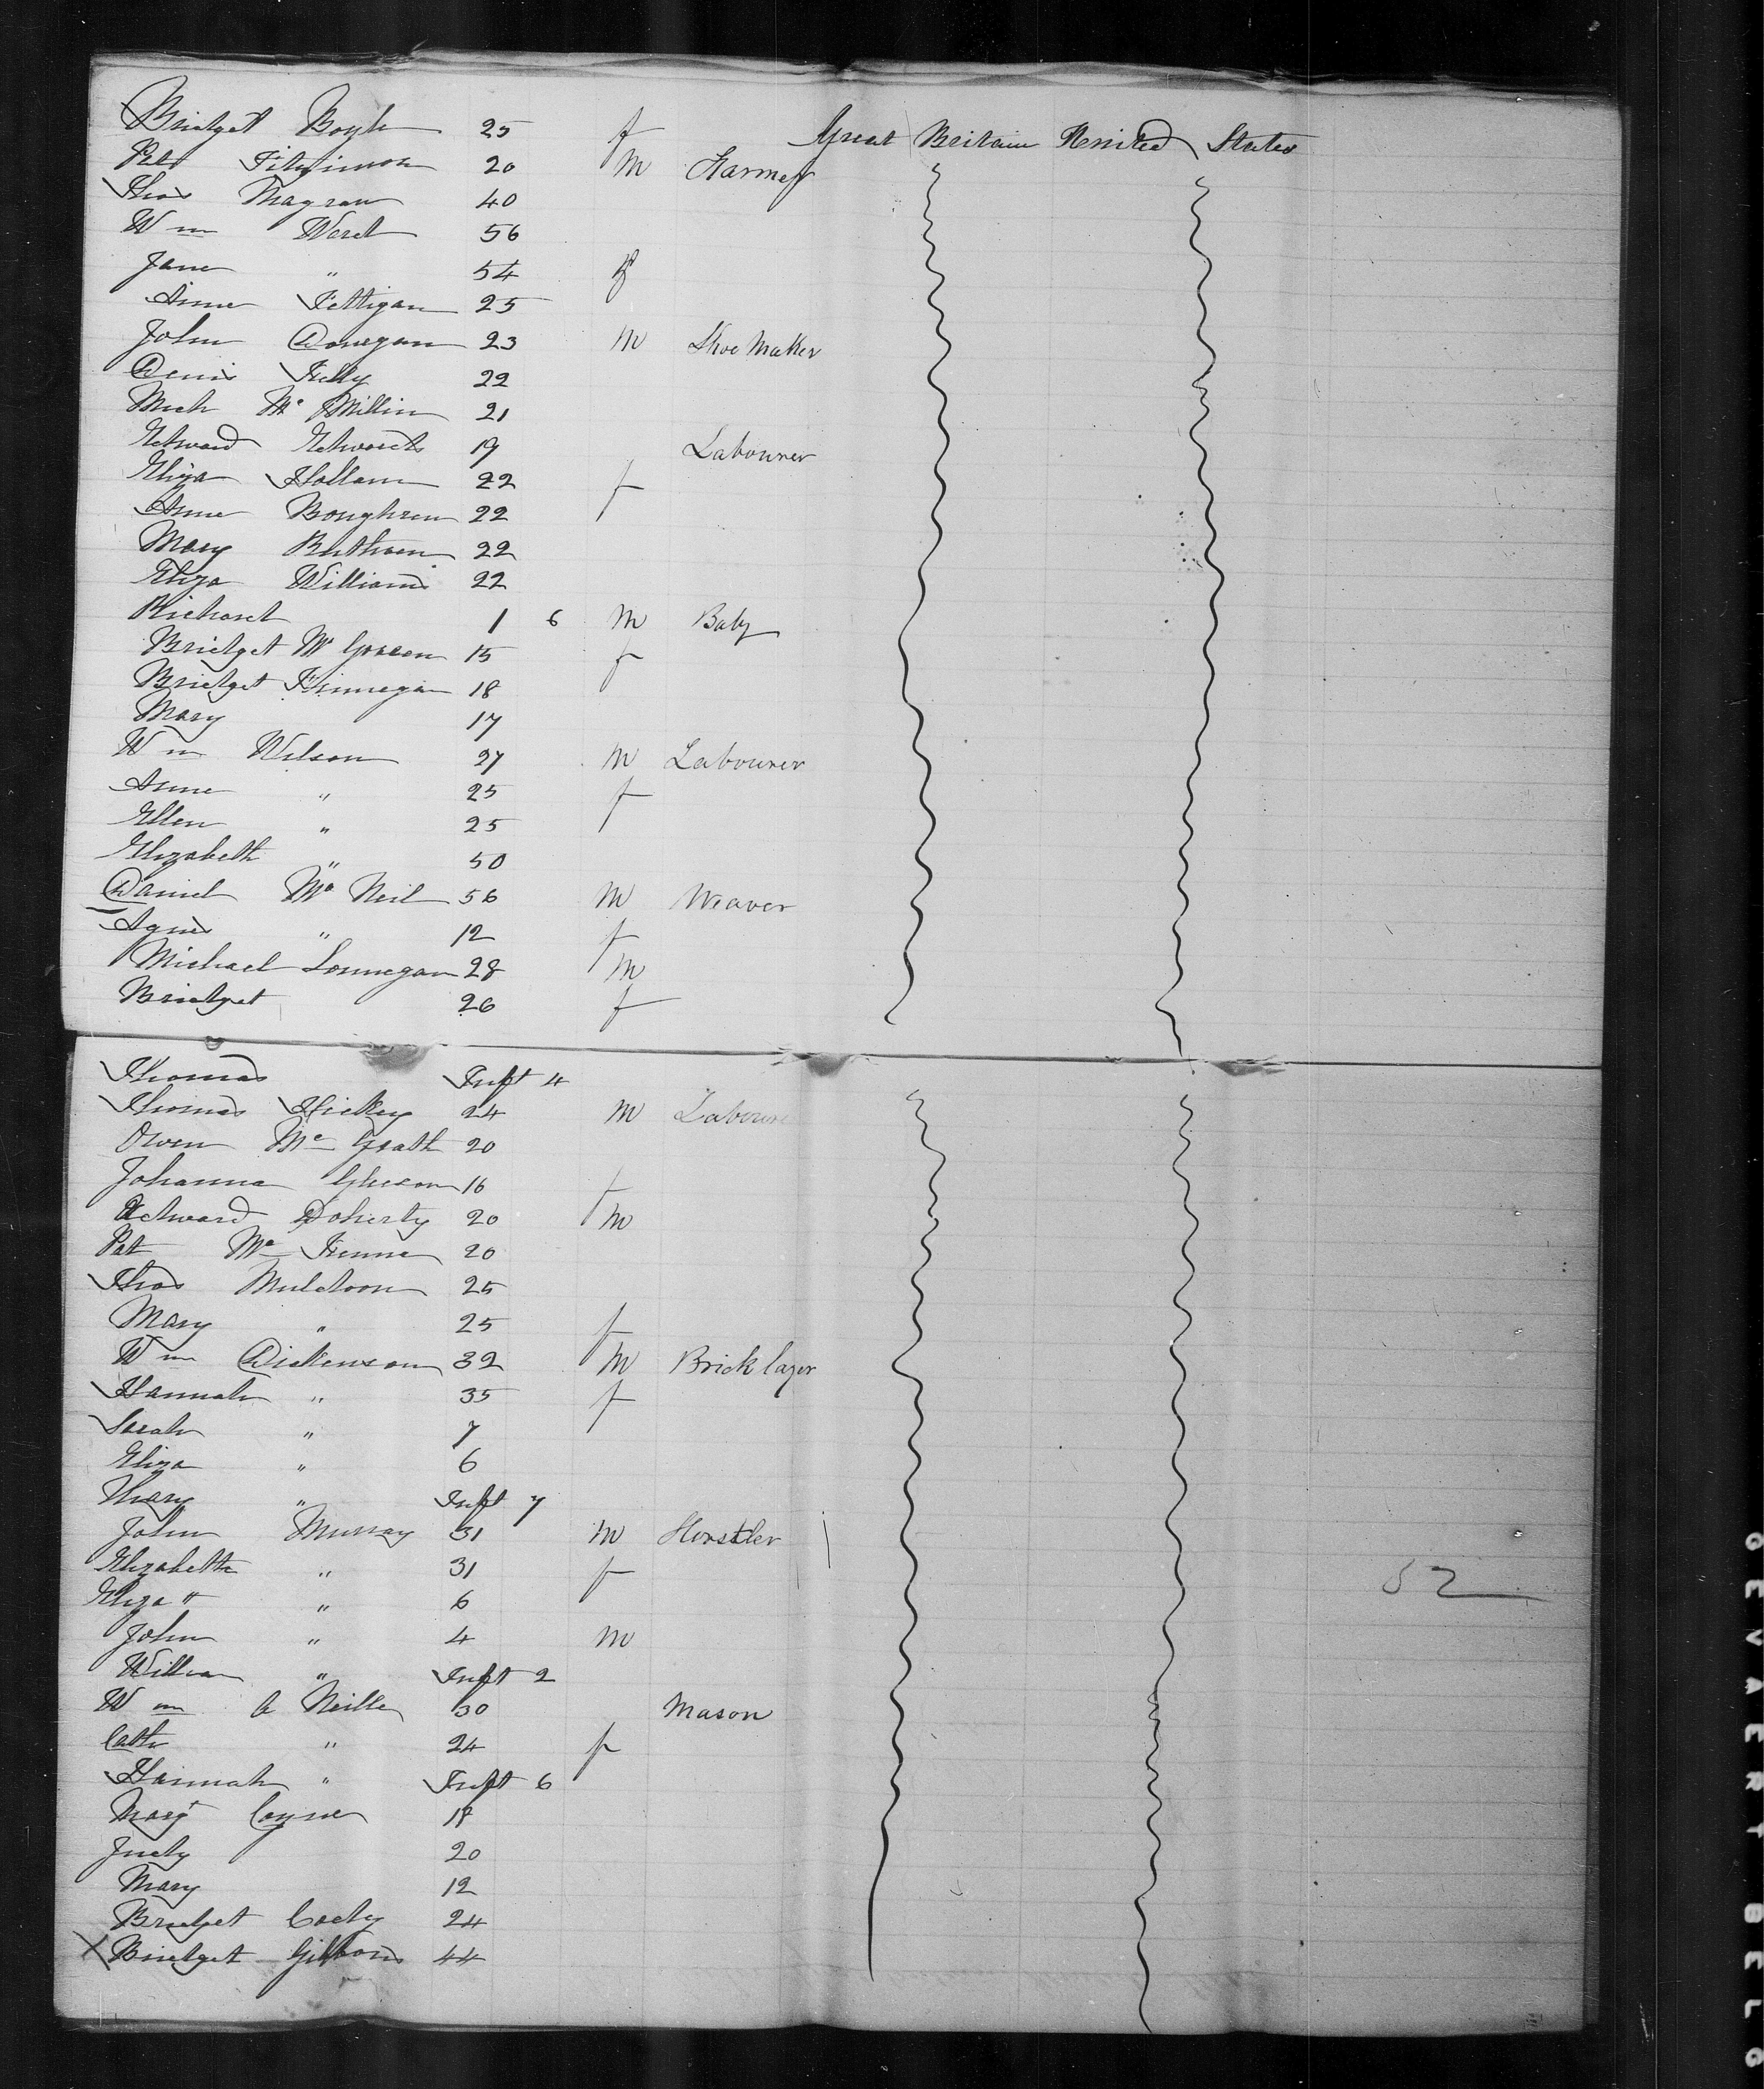 Bridget Boyle 25 f Great Britain United States
Pat Fitzsimon 20 m Farmer
Thos Magraw 40
Wm Ward 56
Jane " 54 f
Anne Fettigan 25
John Donegan 23 m Shoe Maker
Denis Kelly 22
Mich Mc Millin 21
Edward Edwards 19 Labourer
Eliza Hollam 22 f
Anne Boughren 22
Mary 22
Eliza Williams 22
Richard 1 6 m Baby
Bridget Mc 15 f
Bridget Finnegan 18
Mary 17
Wm Wilson 27 m Labourer
Anne " 25 f
Ellen " 25
Elizabeth " 50
Daniel Mc Neil 56 m Weaver
Agnes " 12 f
Michael Lonnegan 28 m
Bridget 26 f
Thomas Inft 4
Thomas Hickey 24 m Laboure
Owen Mc Grath 20
Johanna Gleeson 16 f
Edward Doherty 20 m
Pat Mc Kenna 20
Thos Muldoon 25
Mary " 25 f
Wm Dickenson 32 m Brick layer
Hannah " 35 f
Sarah " 7
Eliza " 6
Mary " Inft 7
John Murray 31 m Horstler
Elizabeth " 31 f
Eliza " " 6
John " 4 m
William " Inft 2
Wm O Neille 30 Mason
Cath " 24 f
Hannah " Inft 6
Margt Coyne 18
Judy 20
Mary 12
Bridget Cody 24
X Bridget Gibbons 44
52
GEVAERT BELG